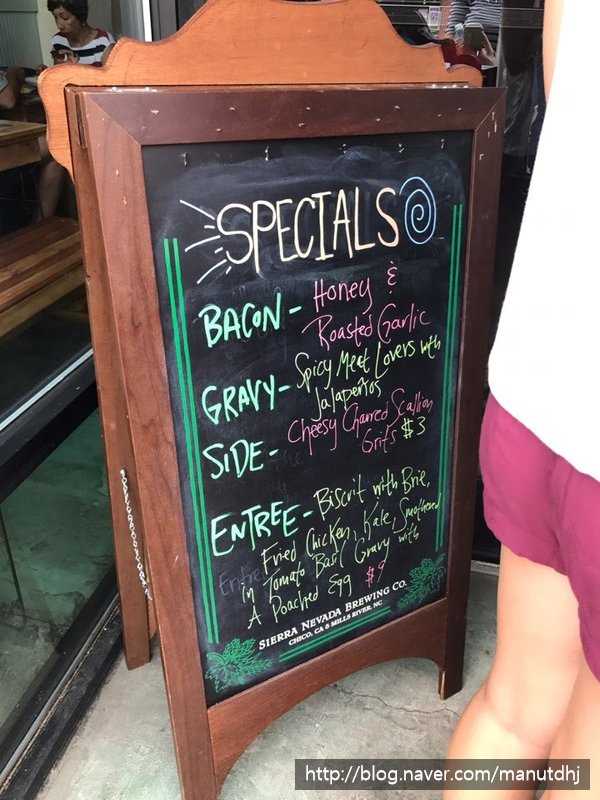 SPECIALS
BACON - Honey &
Roasted Garlic
GRAVY - Spicy Meat Lovers with
Jalapeños
SIDE - Cheesy Charred Scallion
Grits $3
ENTREE - Biscuit with Brie,
Fried Chicken, Kale, Smothered
in Tomato Basil Gravy with
A Poached Egg $9
SIERRA NEVADA BREWING CO.
CHICO, CA & MILLS RIVER, NC
http://blog.naver.com/manutdhj